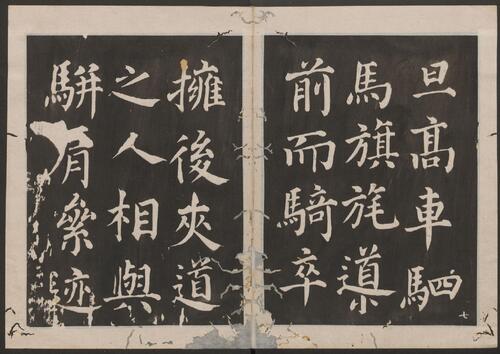 旦高車駟
馬旗旄導
前而騎卒
七
擁後夾道
之人相與
駢肩絫迹